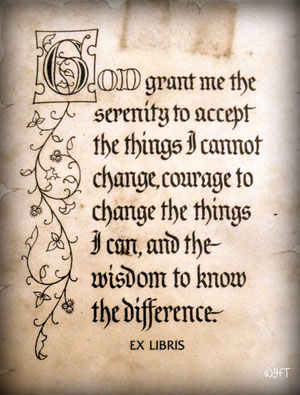 GOD grant me the
serenity to accept
the things I cannot
change, courage to
change the things
I can, and the
wisdom to know
the difference.
EX LIBRIS
WYFT